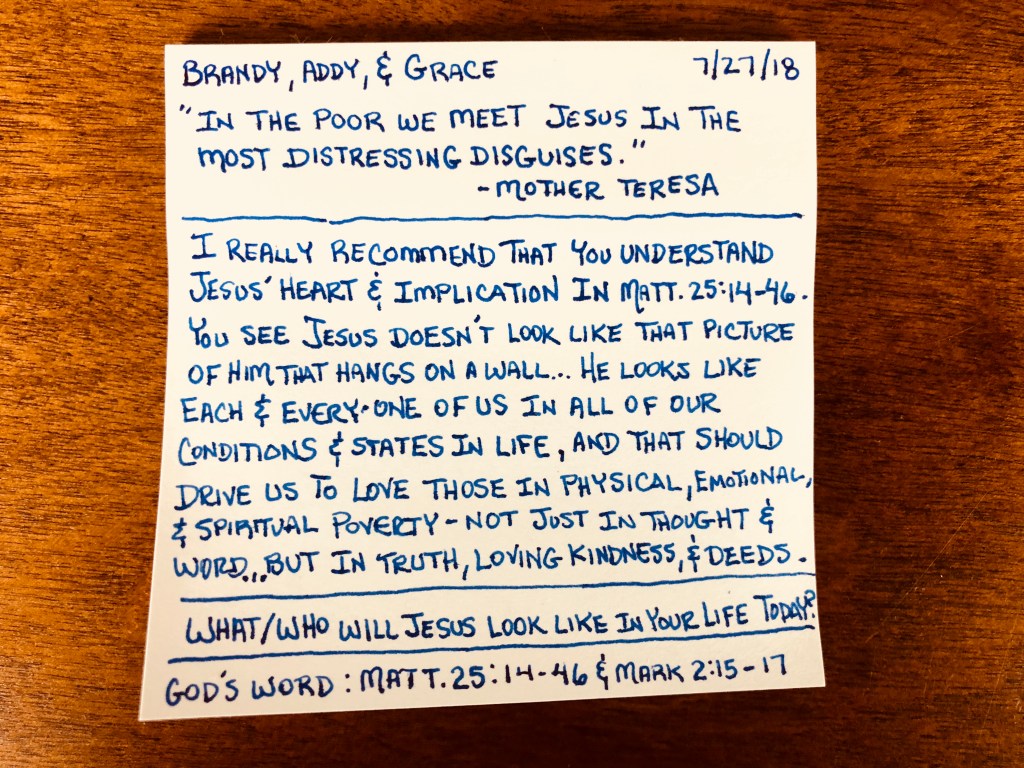 BRANDY, ADDY, & GRACE 7/27/18
"IN THE POOR WE MEET JESUS IN THE
MOST DISTRESSING DISGUISES."
-MOTHER TERESA
I REALLY RECOMMEND THAT YOU UNDERSTAND
JESUS' HEART & IMPLICATION IN MATT. 25:14-46.
YOU SEE JESUS DOESN'T LOOK LIKE THAT PICTURE
OF HIM THAT HANGS ON A WALL... HE LOOKS LIKE
EACH & EVERY-ONE OF US IN ALL OF OUR
CONDITIONS & STATES IN LIFE, AND THAT SHOULD
DRIVE US TO LOVE THOSE IN PHYSICAL, EMOTIONAL,
& SPIRITUAL POVERTY - NOT JUST IN THOUGHT &
WORD... BUT IN TRUTH, LOVING KINDNESS, & DEEDS.
WHAT/WHO WILL JESUS LOOK LIKE IN YOUR LIFE TODAY?
GOD'S WORD: MATT. 25:14-46 & MARK 2:15-17